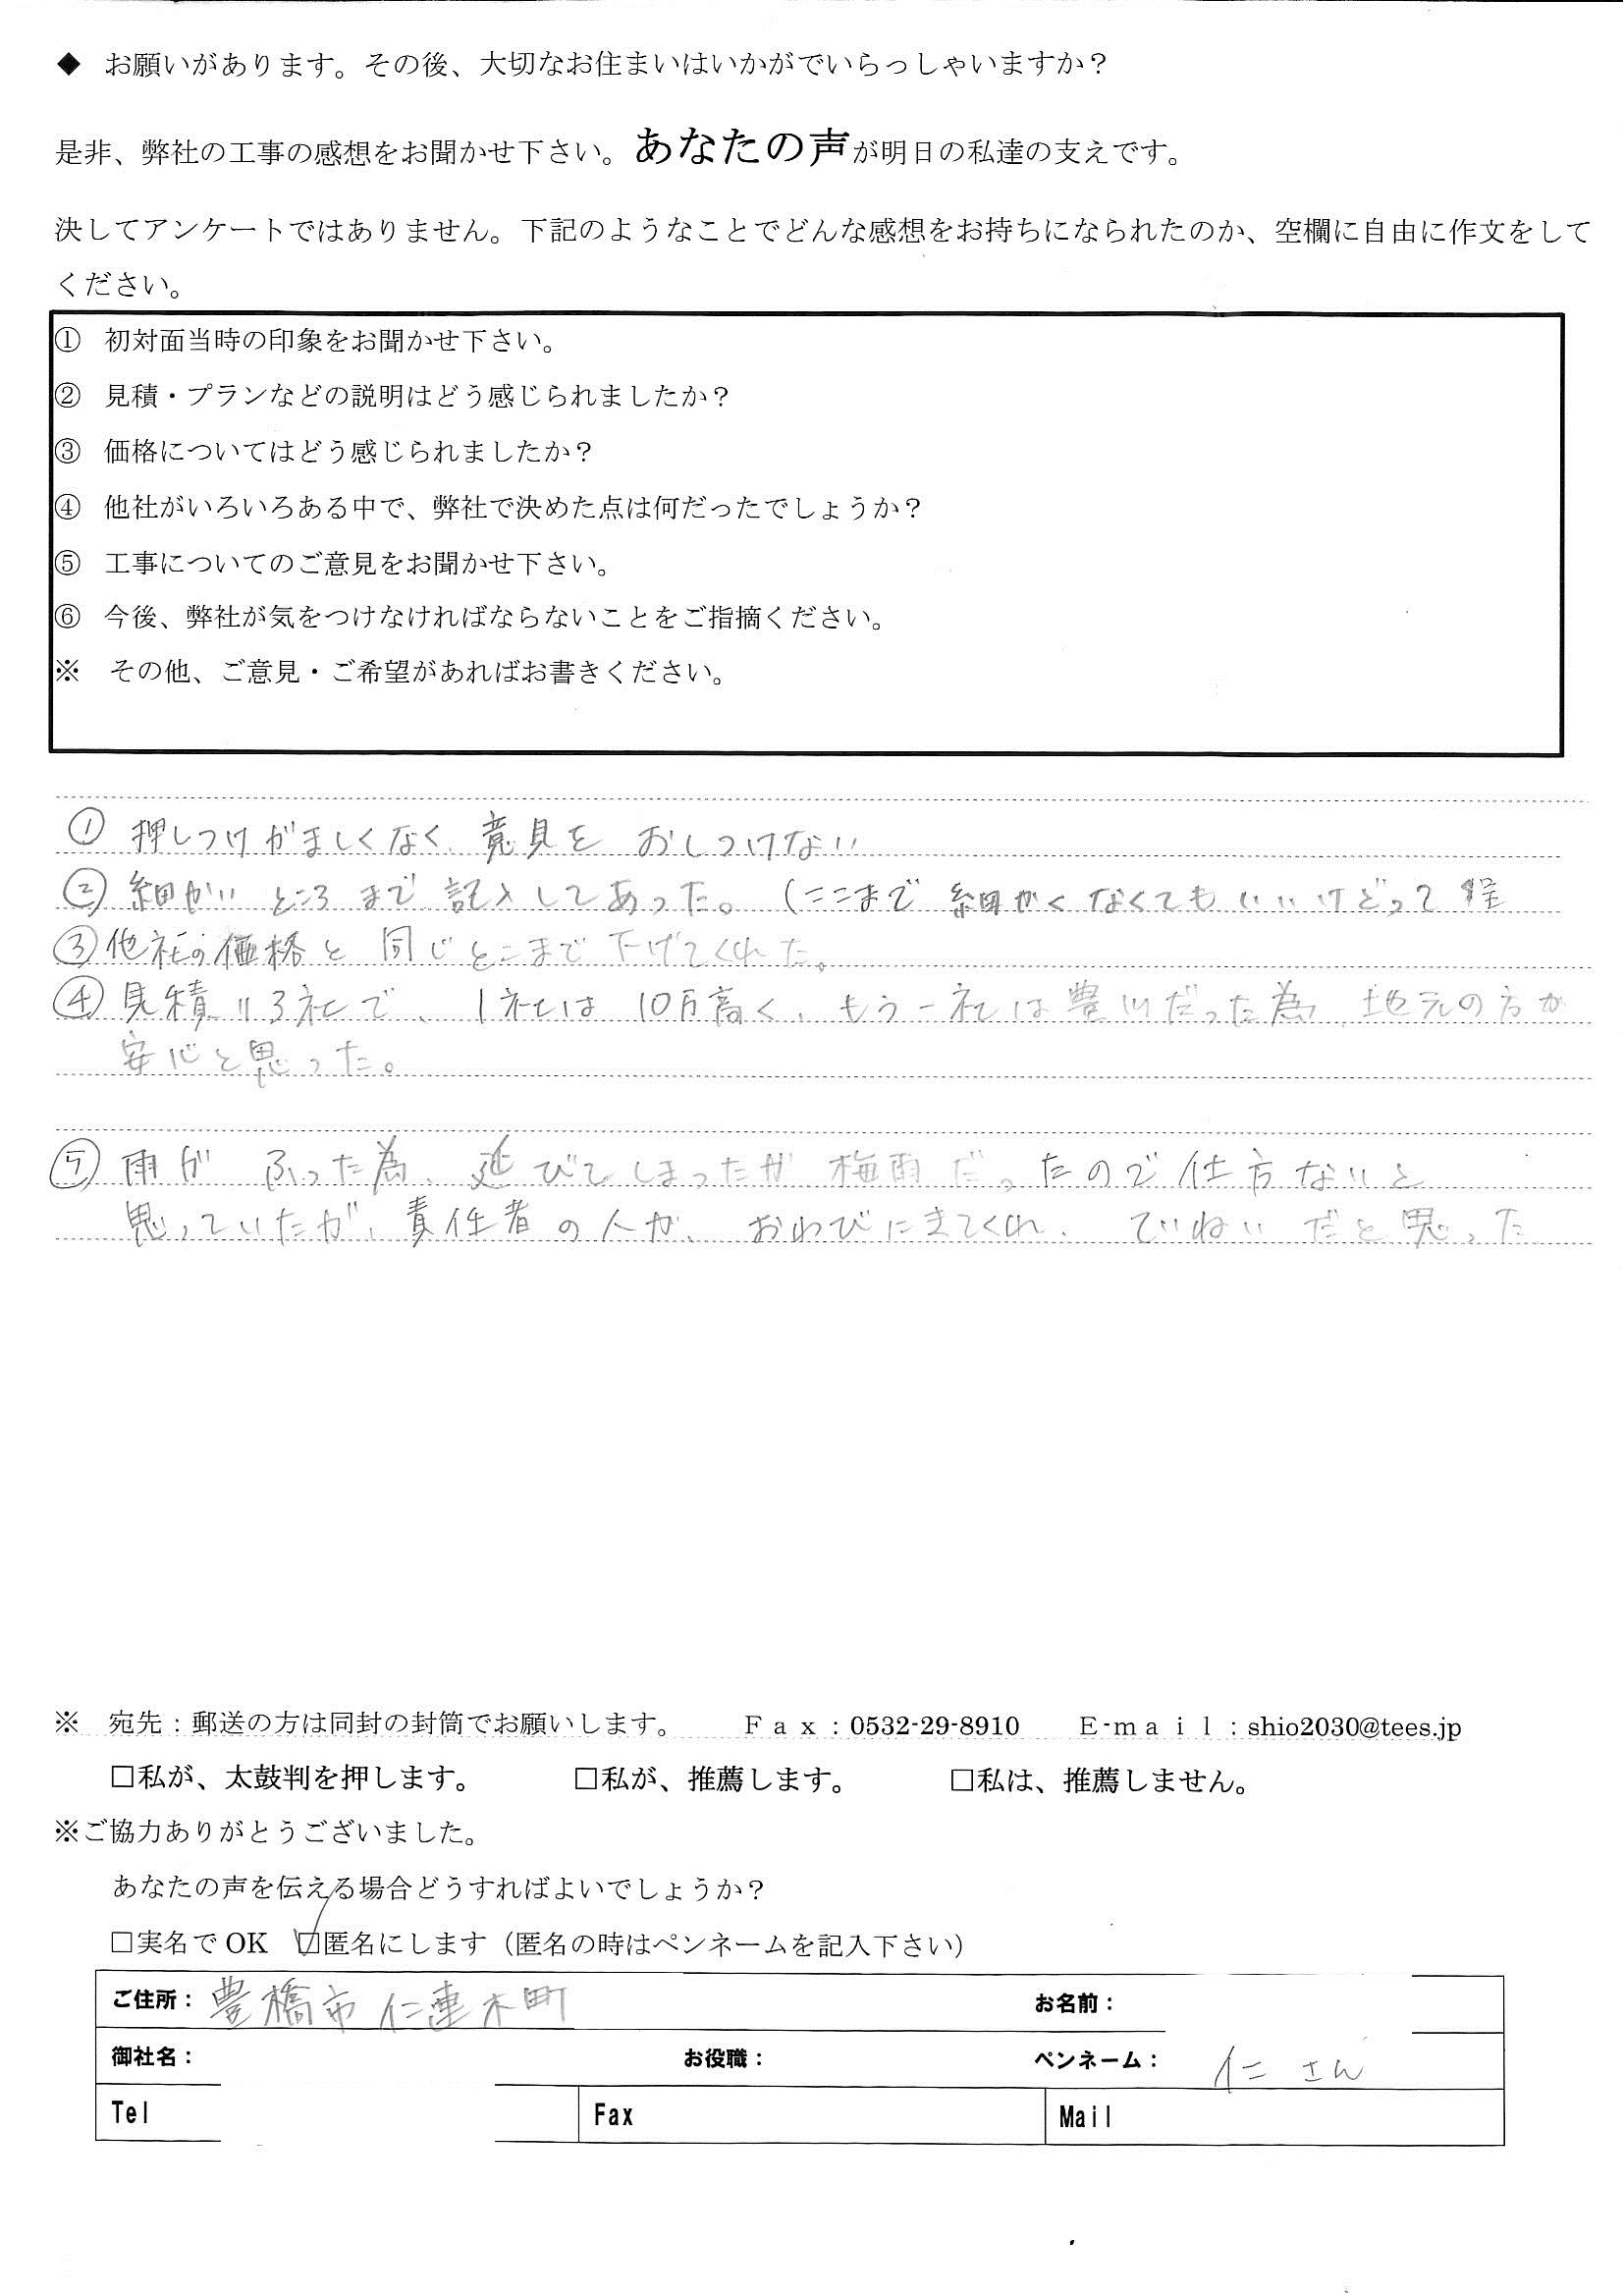 ◆ お願いがあります。その後、大切なお住まいはいかがでいらっしゃいますか？
是非、弊社の工事の感想をお聞かせ下さい。あなたの声が明日の私達の支えです。
決してアンケートではありません。下記のようなことでどんな感想をお持ちになられたのか、空欄に自由に作文をして
ください。
① 初対面当時の印象をお聞かせ下さい。
② 見積・プランなどの説明はどう感じられましたか？
③ 価格についてはどう感じられましたか？
④ 他社がいろいろある中で、弊社で決めた点は何だったでしょうか？
⑤ 工事についてのご意見をお聞かせ下さい。
⑥ 今後、弊社が気をつけなければならないことをご指摘ください。
※ その他、ご意見・ご希望があればお書きください。
① 押しつけがましくなく、意見を おしつけない
② 細かい ところ まで 記入してあった。(ここまで 細かくなくてもいいけどって 程
③ 他社の価格と 同じとこまで下げてくれた。
④ 見積り3社で、1社は10万高く、もう一社は豊川だった為、地元の方が
安心と思った。
⑤ 雨が ふった為、延びてしまったが 梅雨だったので仕方ないと
思っていたが、責任者の人が、おわびにきてくれ、ていねいだと思った
※ 宛先：郵送の方は同封の封筒でお願いします。 Ｆａｘ：0532-29-8910 Ｅ-ｍａｉｌ：shio2030@tees.jp
□私が、太鼓判を押します。 □私が、推薦します。 □私は、推薦しません。
※ご協力ありがとうございました。
あなたの声を伝える場合どうすればよいでしょうか？
□実名でOK ☑匿名にします（匿名の時はペンネームを記入下さい）
ご住所： 豊橋市仁連木町 お名前：
御社名： お役職： ペンネーム： 仁 さん
Tel Fax Mail